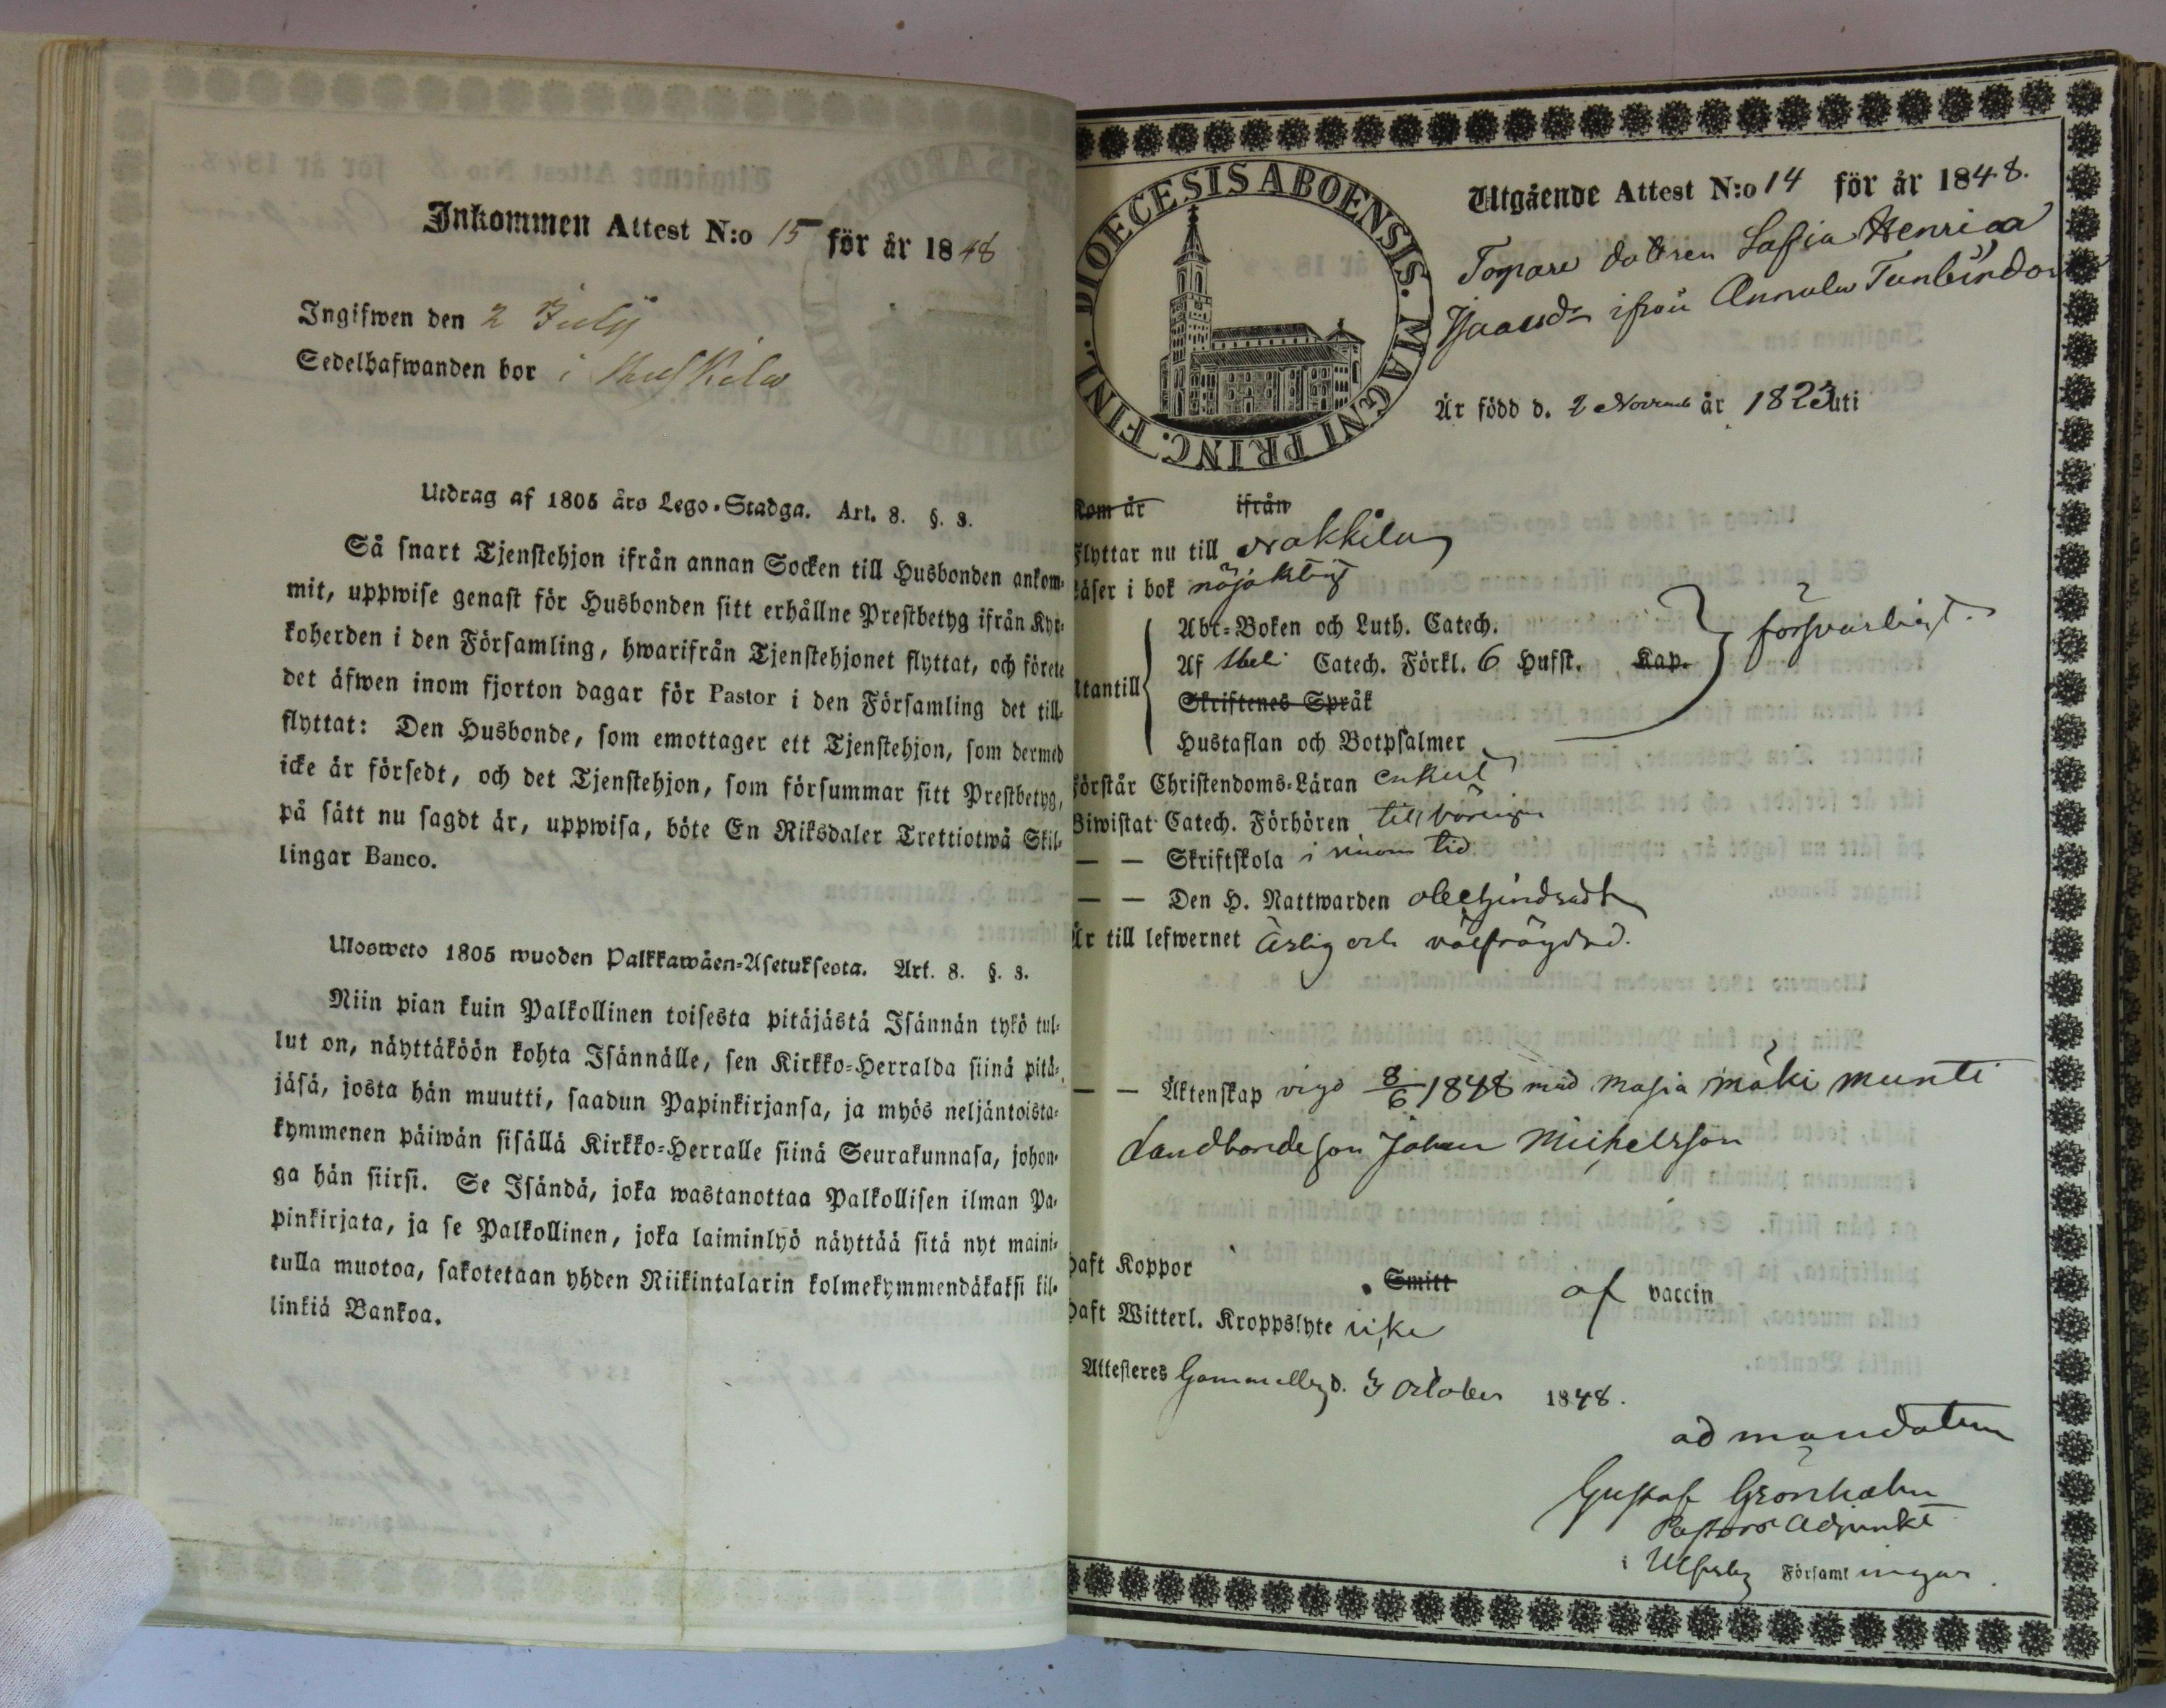 Inkommen Attest N:o 15 för år 1848
Ingifwen den 2 Julij
Sedelhafwanden bor i
Utdrag af 1805 års Lego-Stadga. Art. 8. §. 3.
Så snart Tjenstehjon ifrån annan Socken till Husbonden ankom-
mit, uppwise genast för Husbonden sitt erhållne Prestbetyg ifrån Kyr-
koherden i den Församling, hwarifrån Tjenstehjonet flyttat, och förete
det äfwen inom fjorton dagar för Pastor i den Församling det till-
flyttat: Den Husbonde, som emottager ett Tjenstehjon, som dermed
icke är försedt, och det Tjenstehjon, som försummar sitt Prestbetyg,
på sätt nu sagdt är, uppwisa, böte En Riksdaler Trettiotwå Skil-
lingar Banco.
Ulosweto 1805 wuoden Palkkawäen-Asetuksesta. Art. 8. §. 3.
Niin pian kuin Palkollinen toisesta pitäjästä Isännän tykö tul-
lut on, näyttäköön kohta Isännälle, sen Kirkko-Herralda siinä pitä-
jäsä, josta hän muutti, saadun Papinkirjansa, ja myös neljäntoista-
kymmenen päiwän sisällä Kirkko-Herralle siinä Seurakunnasa, johon-
ga hän siirsi. Se Isändä, joka wastanottaa Palkollisen ilman Pa-
pinkirjata, ja se Palkollinen, joka laiminlyö näyttää sitä nyt maini-
tulla muotoa, sakotetaan yhden Riikintalarin kolmekymmendäkaksi kil-
linkiä Bankoa.
DIOECESIS ABOENSIS. MAGNI PRINC. FINL.
Utgående Attest N:o 14 för år 1848.
dottren Sofia Henrica
ifrån Annala
Är född d. 2 Novemb år 1823 uti
Kom år ifrån
Flyttar nu till Nakkila
Läser i bok nöjaktigt
Utantill
Abc-Boken och Luth. Catech.
Af Catech. Förkl. 6 Hufst. Kap.
försvarligt.
Skriftenes Språk
Hustaflan och Botpsalmer
Förstår Christendoms-Läran enkelt
Biwistat Catech. Förhören
— — Skriftskola i sinom tid
— — Den H. Nattwarden obehindradt
Är till lefwernet ärlig och välfrägdad.
— — Äktenskap vigd 8/6 1848 med Masia Mäki Munti
Landbondeson Johan Michelsson
Haft Koppor Smitt af vaccin
Haft Witterl. Kroppslyte icke
Attesteres Gammelby d. 3 October 1848.
ad mandatum
Gustaf Grönholm
Pastors Adjunkt
i Ulfsby Församlingar.